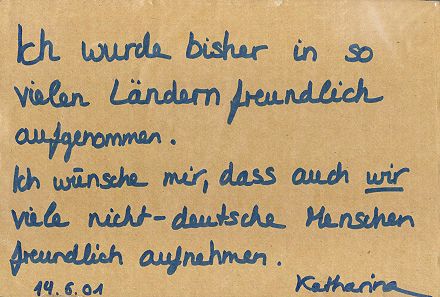 Ich wurde bisher in so
vielen Ländern freundlich
aufgenommen.
Ich wünsche mir, dass auch wir
viele nicht-deutsche Menschen
freundlich aufnehmen.
14.6.01 Katharina